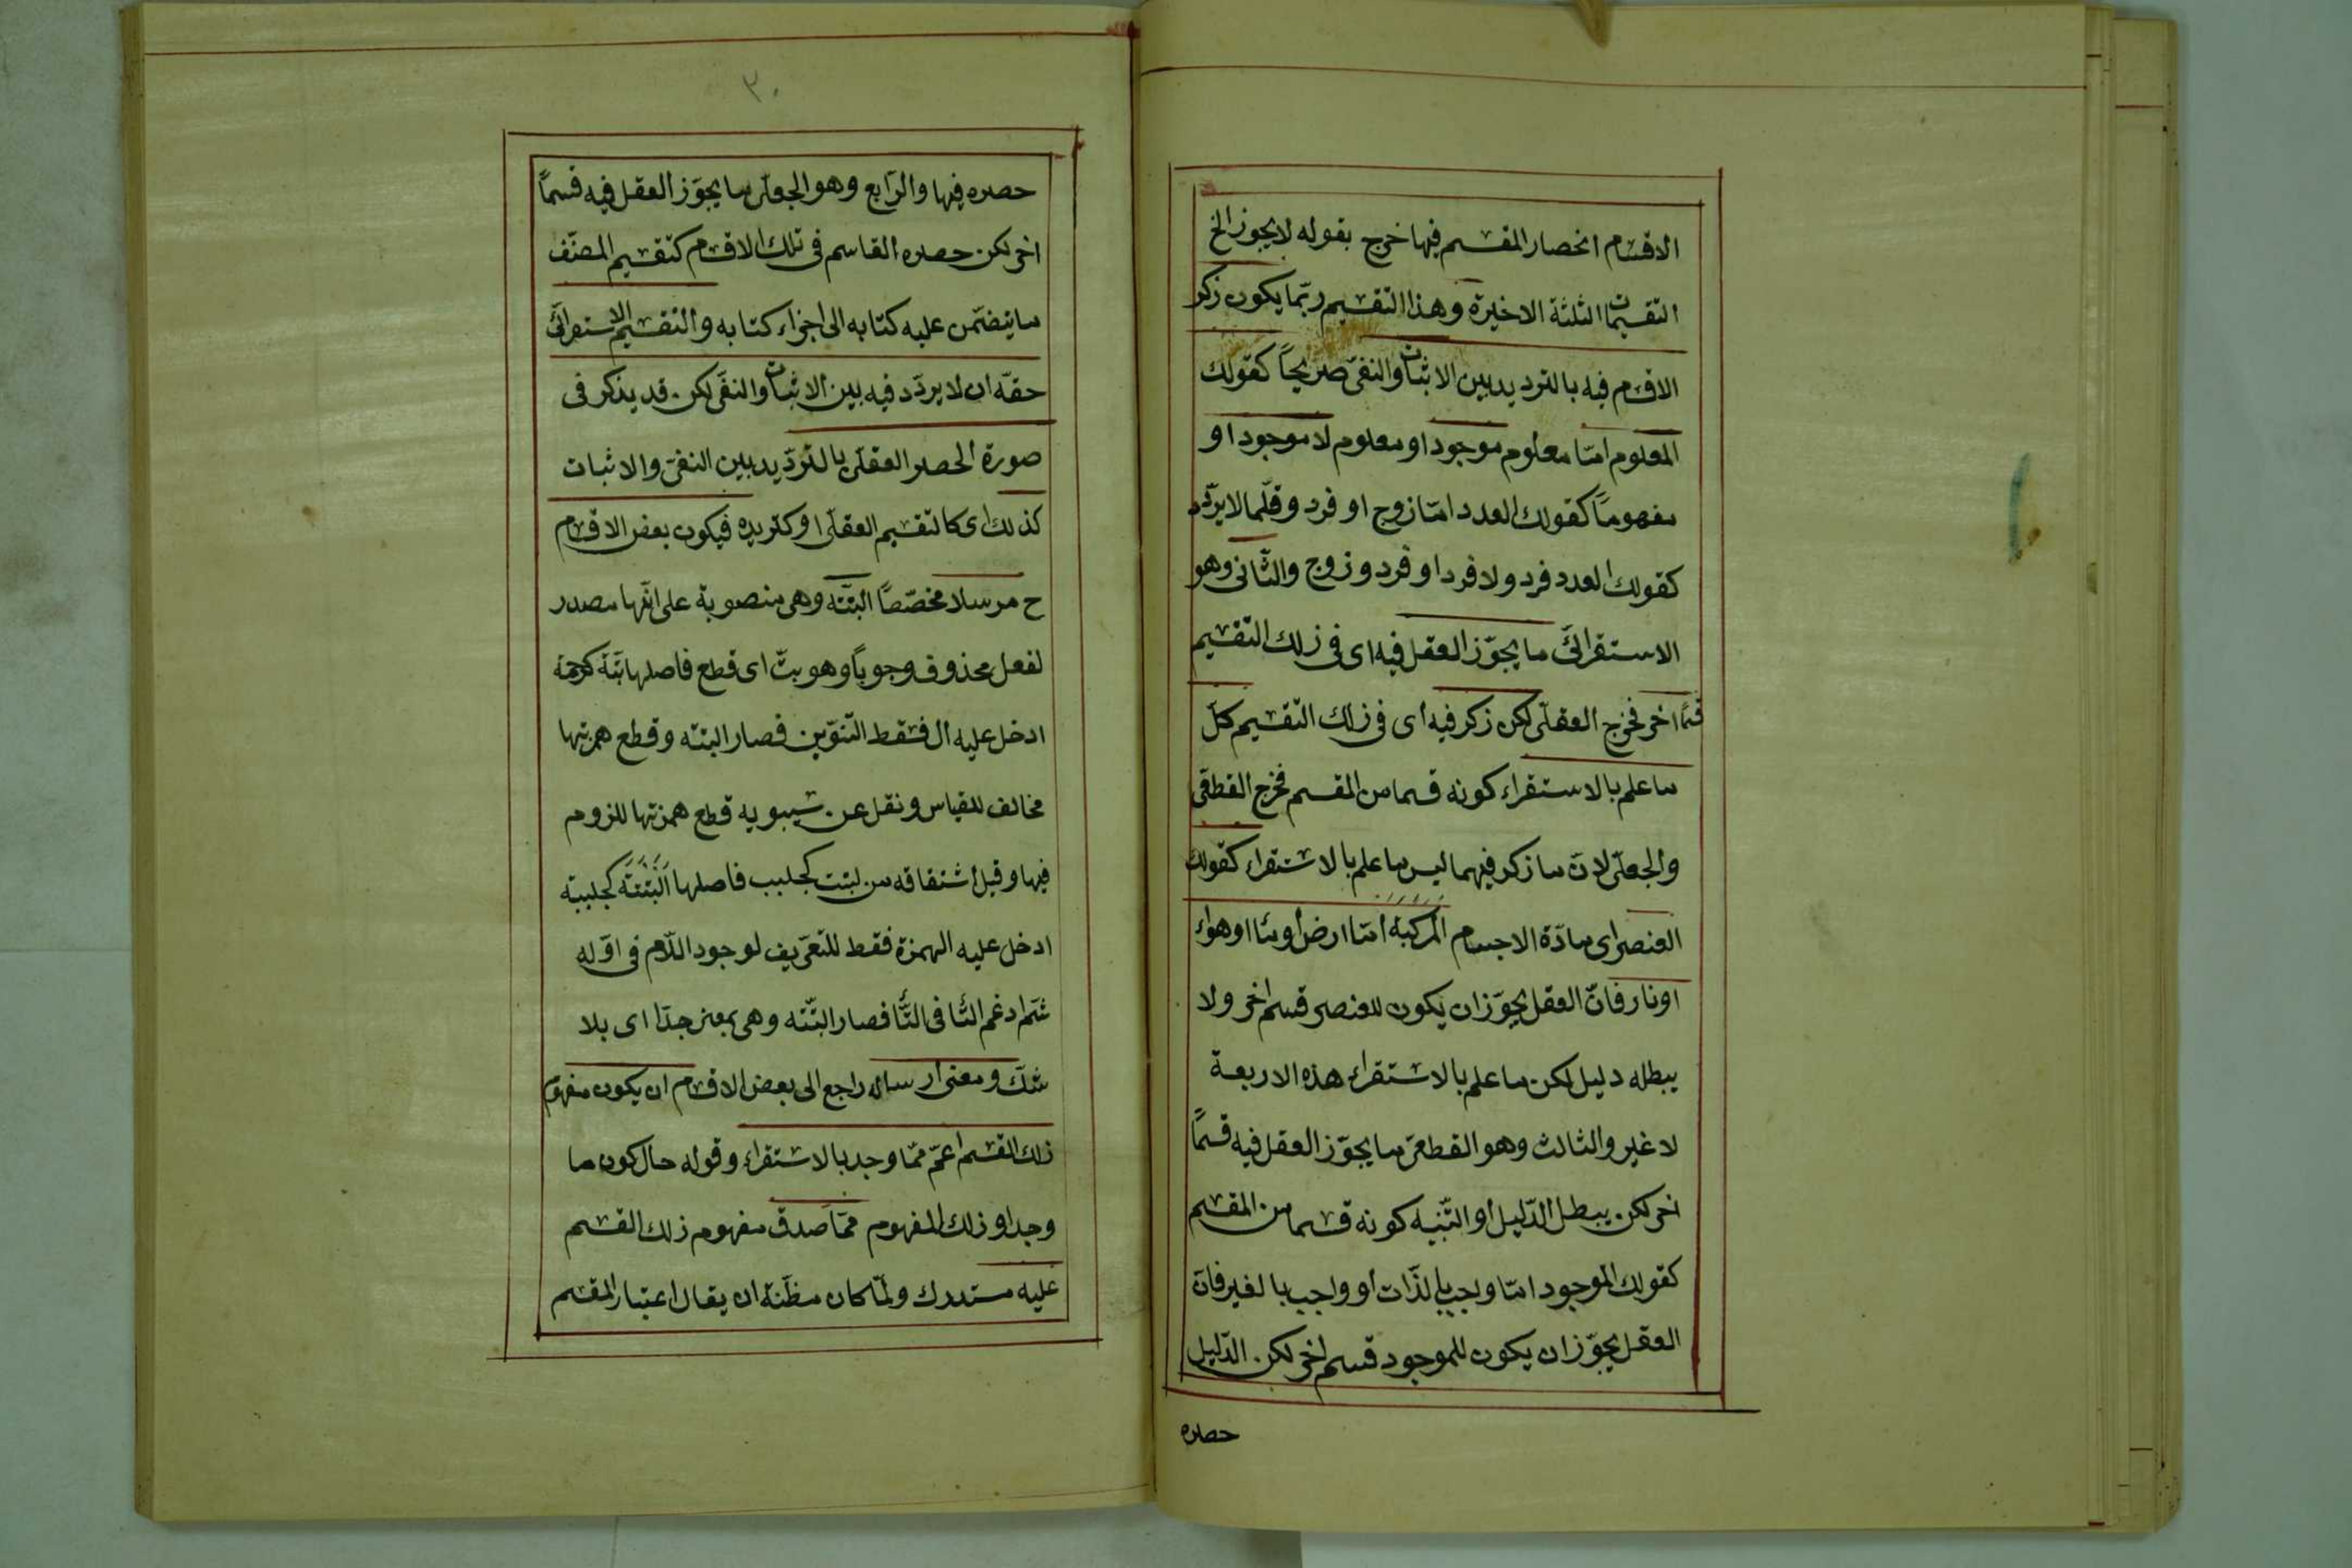 الاقسام انحصار المقسم فيها خرج بقوله لا يجوز الخ
التقسيمات الثلثة الاخيرة وهذا التقسيم ربّما يكون ذكر
الاقسام فيه بالترديد بين الاثبات والنفى صريحًا كقولك
المعلوم امّا معلوم موجود او معلوم لا موجود او
مفهومًا كقولك العدد امّا زوج او فرد وقلّما لا يردّد
كقولك العدد فرد ولا فرد او فرد وزوج والثّانى وهو
الاستقرائىّ ما يجوّز العقل فيه اى فى ذلك التقسيم
قسمًا اخر فخرج العقلّى لكن ذكر فيه اى فى ذلك التقسيم كلّ
ما علم بالاستقراء كونه قسما من المقسم فخرج القطعى
والجعلّى لانّ ما ذكر فيهما ليس ما علم بالاستقراء كقولك
العنصر اى مادّة الاجسام المركبة امّا ارض او ماء او هواء
او نار فانّ العقل يجوّز ان يكون للعنصر قسم اخر ولا
يبطله دليل لكن ما علم بالاستقراء هذه الاربعة
لا غير والثالث وهو القطعىّ ما يجوّز العقل فيه قسمًا
اخر لكن يبطل الدّليل او التّنبيه كونه قسما من المقسم
كقولك الموجود امّا واجب بالذّات او واجب بالغير فانّ
العقل يجوّز ان يكون للموجود قسم اخر لكن الدّليل
حصره
٣٠
حصره فيها والرّابع وهو الجعلّى ما يجوّز العقل فيه قسمًا
اخر لكن حصره القاسم فى تلك الاقسام كتقسيم المصنّف
ما يتضمّن عليه كتابه الى اجزاء كتابه والتقسيم الاستقرائىّ
حقّه ان لا يردّد فيه بين الاثبات والنفى لكن قد يذكر فى
صورة الحصر العقلّى بالتردّيد بين النفى والاثبات
كذلك اى كالتقسيم العقلّى او كترديده فيكون بعض الاقسام
ح مرسلا مخصّصًا البتّة وهى منصوبة على انّها مصدر
لفعل محذوف وجوبًا وهو بتّ اى قطع فاصلها بتّة كرحمة
ادخل عليه ال فسقط التنوين فصار البتّه وقطع همزتها
مخالف للقياس ونقل عن سيبويه قطع همزتها للزوم
فيها وقيل اشتقاقه من لبتت كجلبب فاصلها اَلبَتَتَة كجلببة
ادخل عليه الهمزة فقط للتعريف لوجود اللّام فى اوّله
ثمّ ادغم التّاء فى التّاء فصار البتّته وهى بمعنى جدّا اى بلا
شكّ ومعنى ارساله راجع الى بعض الاقسام ان يكون مفهوم
ذلك القسم اعمّ ممّا وجد بالاستقراء وقوله حال كون ما
وجد او ذلك المفهوم ممّا صدق مفهوم ذلك القسم
عليه مستدرك ولمّا كان مظنّة ان يقال اعتبار المقسم